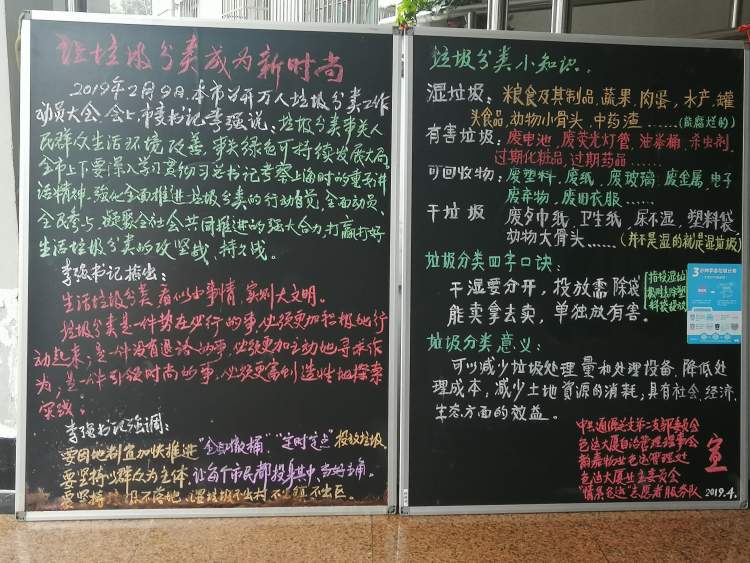 让垃圾分类成为新时尚
2019年2月9日,本市召开万人垃圾分类工作
动员大会,会上,市委书记李强说:垃圾分类事关人
民群众生活环境改善,事关绿色可持续发展大局。
全市上下要深入学习贯彻习总书记考察上海时的重要讲
话精神,强化全面推进垃圾分类的行动自觉,全面动员、
全民参与,凝聚全社会共同推进的强大合力,打赢打好
生活垃圾分类的攻坚战、持久战。
李强书记指出:
生活垃圾分类看似小事情,实则大文明。
垃圾分类是一件势在必行的事,必须更加积极地行
动起来;是一件没有退路的事,必须更加主动地寻求作
为;是一件引领时尚的事,必须更富创造性地探索
实践。
李强书记强调:
要因地制宜加快推进"全面撤桶"、"定时定点"投放垃圾。
要坚持以群众为主体,让每个市民都投身其中、当好主角。
要坚持 不落地、湿垃圾不出村、不出镇、不出区。
垃圾分类小知识。
湿垃圾:粮食及其制品、蔬果、肉蛋、水产、罐
头食品、动物小骨头、中药渣……(能腐烂的)
有害垃圾:废电池、废荧光灯管、油漆桶、杀虫剂、
过期化妆品、过期药品……
可回收物:废塑料、废纸、废玻璃、废金属、电子
废弃物、废旧衣服……
干垃圾 废歺巾纸、卫生纸、尿不湿、塑料袋、
动物大骨头……(并不是湿的就是湿垃圾)
垃圾分类四字口诀:
干湿要分开,投放需除袋
能卖拿去卖,单独放有害。
垃圾分类意义:
可以减少垃圾处理量和处理设备,降低处
理成本,减少土地资源的消耗,具有社会、经济、
生态方面的效益。
色达大厦自治管理理事会
色达大厦业主委员会
"情系色达"志愿者服务队
宣
2019.4.